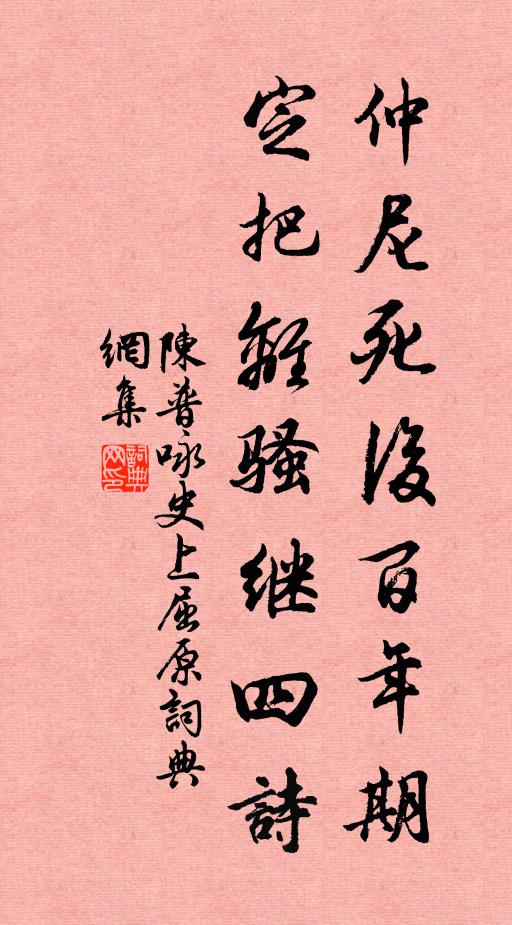 仲尼死後百年期
定把離騷继四詩
陳普咏史上屈原詞典
網集
詞典
网印